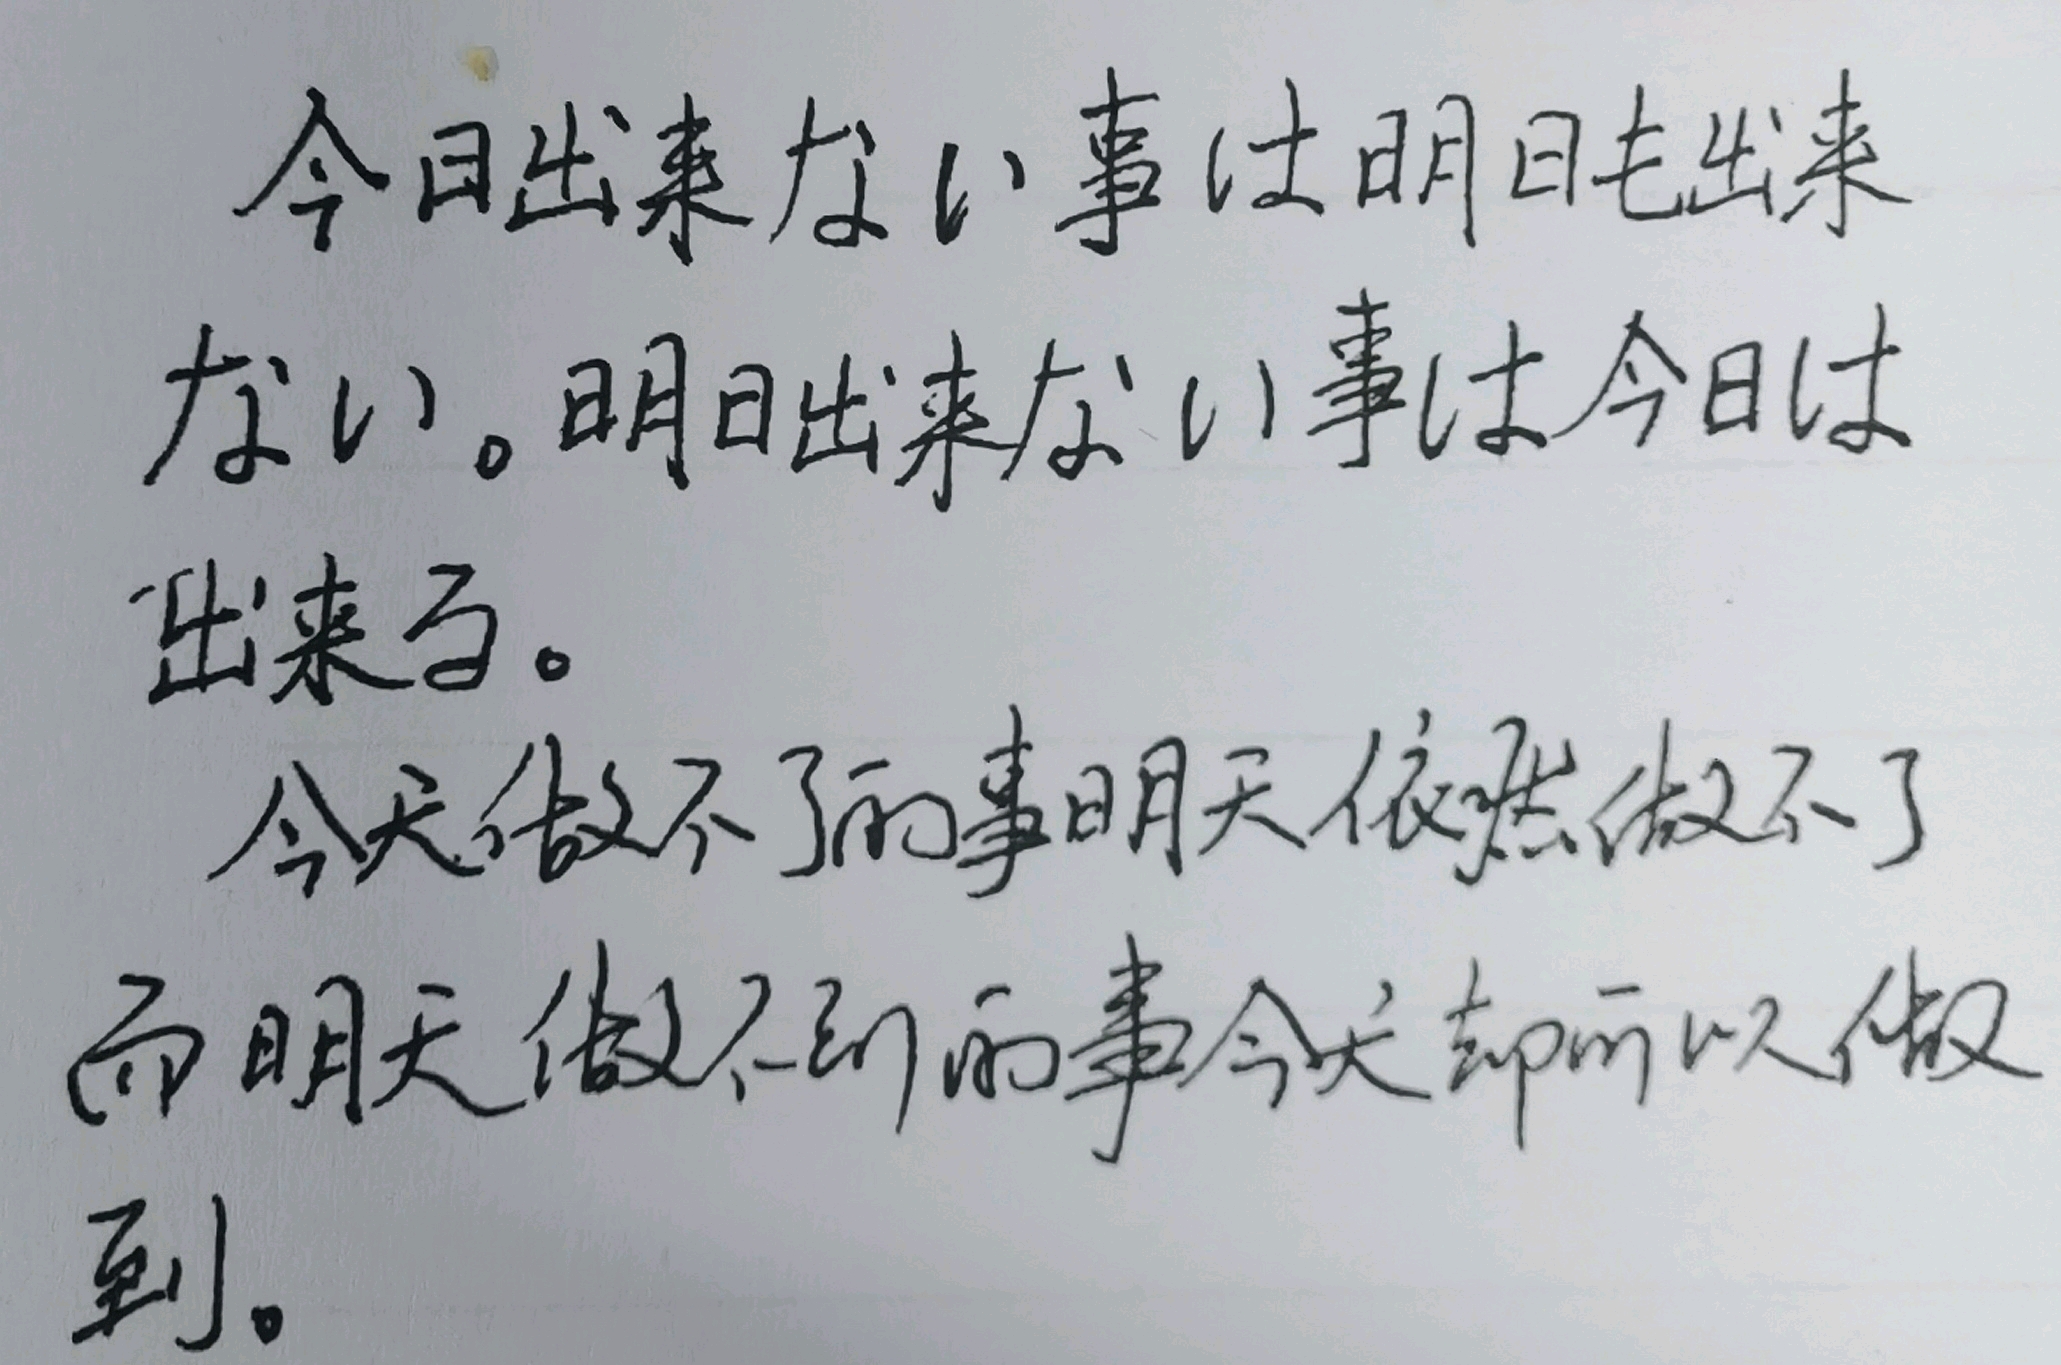 今日出来ない事は明日も出来
ない。明日出来ない事は今日は
出来る。
今天做不了的事明天依然做不了
而明天做不到的事今天却所以做
到。